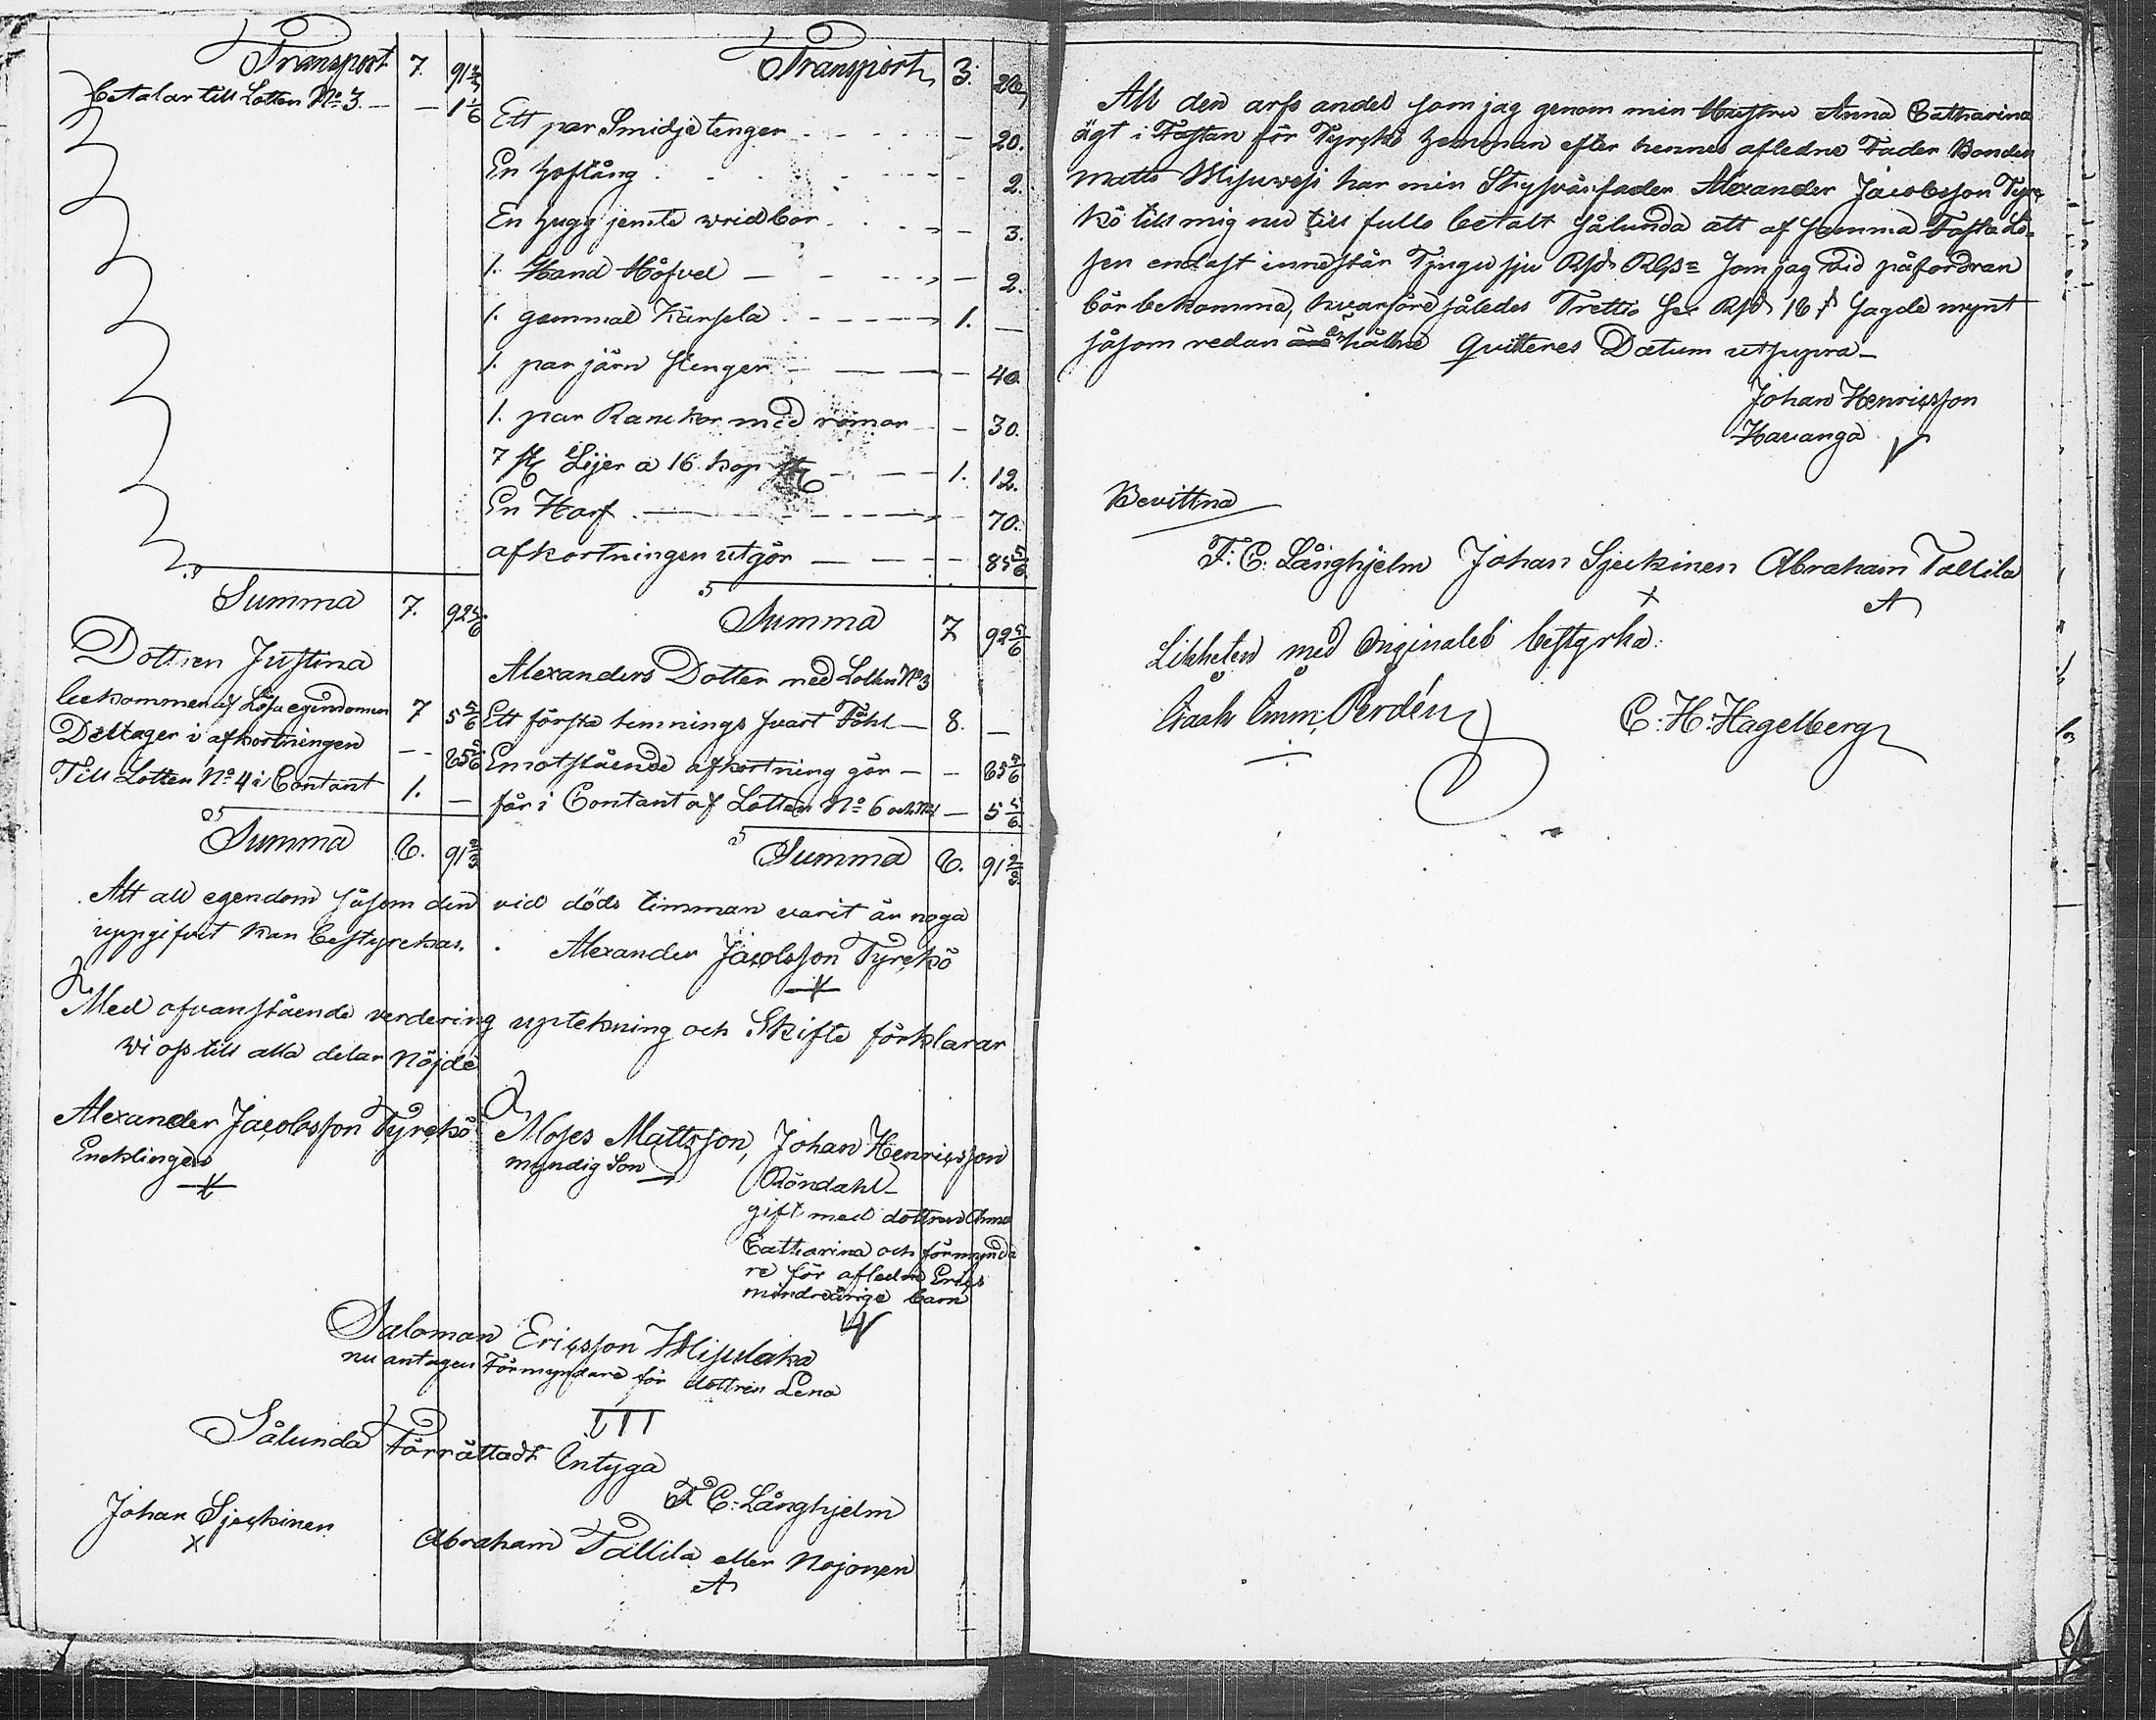 Transport 7. 91 2/3
betalar till Lotten No 3. — — 1 1/6
Summa 7. 92 5/6
Dottren Justina
bekommer af Lösa egendomen 7 5 5/6
Deltager i afkortningen — 85 5/6
Till Lotten No 4 i Contant 1. —
Summa 8. 91 2/3
Transport 3. 26
Ett par Smidje tenger — 20.
En hoftång — 2.
En hugg jemte vridbor — 3.
1. Hand Höfvel — 2.
1. gammal Kärsela 1. —
1. par järn stenger — 40.
1. par Ranckor med römor — 30.
7 st Lijer a 16 kop st 1. 12.
En Harf — 70.
afkortningen utgör — 85 5/6
Summa 7 92 5/6
Alexanders Dotter med Lotten No 3
Ett första temnings svart Föhl — 8. —
Emotstående afkortning gör — — 85 5/6
får i Contant af Lotten No 6 och No 1 — 5 5/6
Summa 8. 91 2/3
Att all egendom såsom den vid döds timman varit är noga
uppgifvit kan bestyrckas. Alexander Jacobsson Tyrckö
Med ofvanstående verdering uptekning och Skifte förklarar
Wi oss till alla delar Nöjde
Alexander Jacobsson Tyrckö
Encklingen
Moses Mattsson,
myndig Son
Johan Henricsson
Röndahl
gift med dottren Anna
Catharina och förmynda
re för afledne Erics
minderårige barn
Saloman Ericsson
nu antagen Förmyndare för dottren Lena
III
Sålunda Förrättadt Intyga
F. C. Långhjelm
Johan Sjeckinen
X
Abraham Tallila eller Nojonen
A
All den arfs andel som jag genom min Hustru Anna Catharina
ägt i Fastan för Tyrckö hemman efter hennes afledne Fader Bonden
Matts har min Styfsvärfader Alexander Jacobsson Tyrc
kö till mig nu till fullo betalt sålunda att af samma Fasta Lö-
sen endast innestår Tjugu sju som jag vid påfordran
bör bekomma, hvarföre således Trettio sex 16 sagde mynt
såsom redan erhållne Quitteres Datum utsupra —
Johan Henricsson
Havanga
Bevittna
F. C. Långhjelm Johan Sjeckinen Abraham Tallila
X A
Likheten med Originalet bestyrka:
Isaak Emm: Perdén C: H: Hagelberg